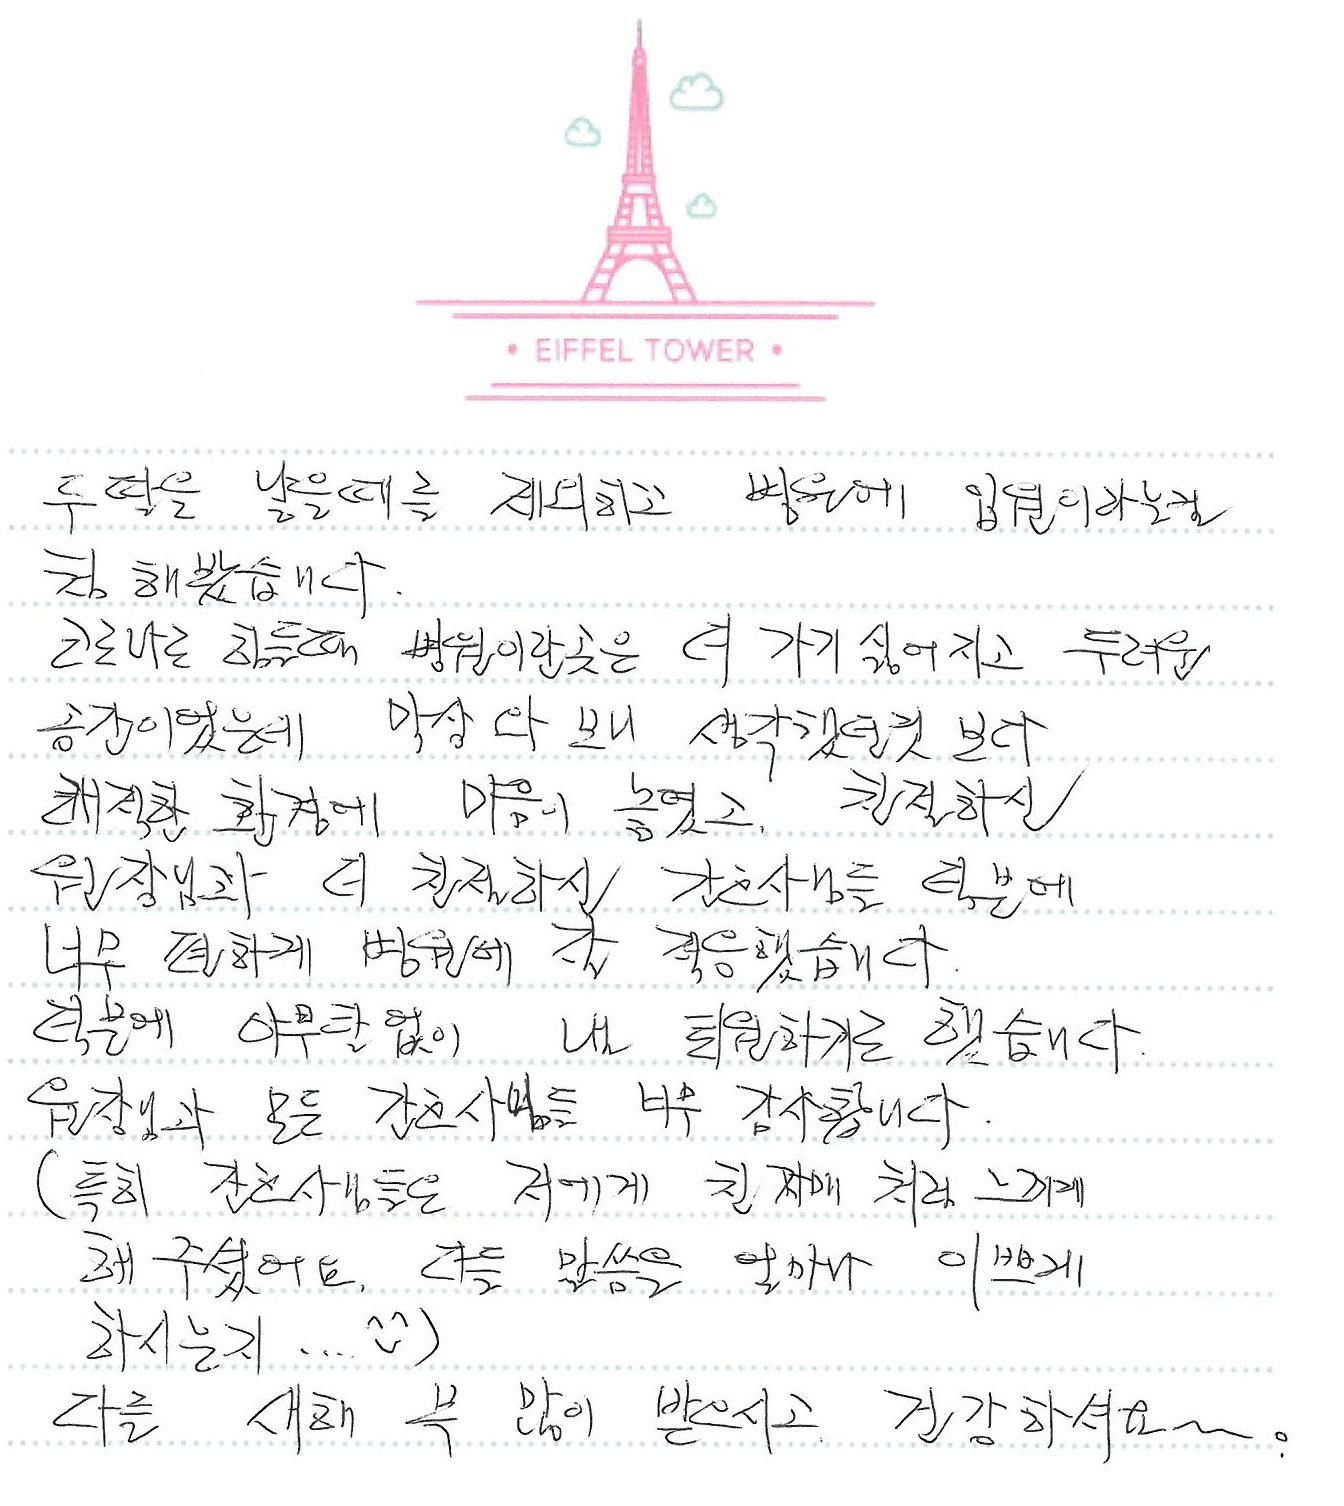 • EIFFEL TOWER •
두 딸을 낳을때를 제외하고 병원에 입원이라는걸
첨 해봤습니다.
코로나로 힘들때 병원이란곳은 더 가기 싫어지고 두려운
공간이였는데 막상 와 보니 생각했던것 보다
쾌적한 환경에 마음이 놓였고, 친절하신
원장님과 더 친절하신 간호사님들 덕분에
너무 편하게 병원에 잘 적응했습니다.
덕분에 아무탈 없이 낼 퇴원하기로 했습니다.
원장님과 모든 간호사님들 너무 감사합니다.
(특히 간호사님들은 저에게 친 자매 처럼 느끼게
해 주셨어요. 다들 말씀을 얼마나 이쁘게
하시는지 .... ^^)
다들 새해 복 많이 받으시고 건강하셔요~.